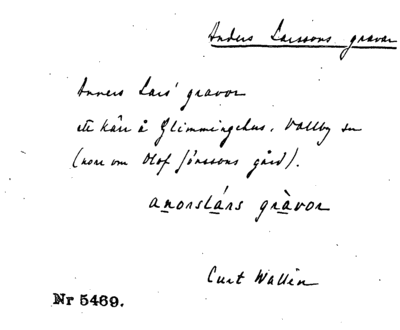 Anders Larssons gravar
Anners Lars' gravor
ett kärr å Glimmingehus, Vallby sn
(norr om Olof Jönssons gård).
anorslárs gràvor
Curt Wallin
Nr 5469.